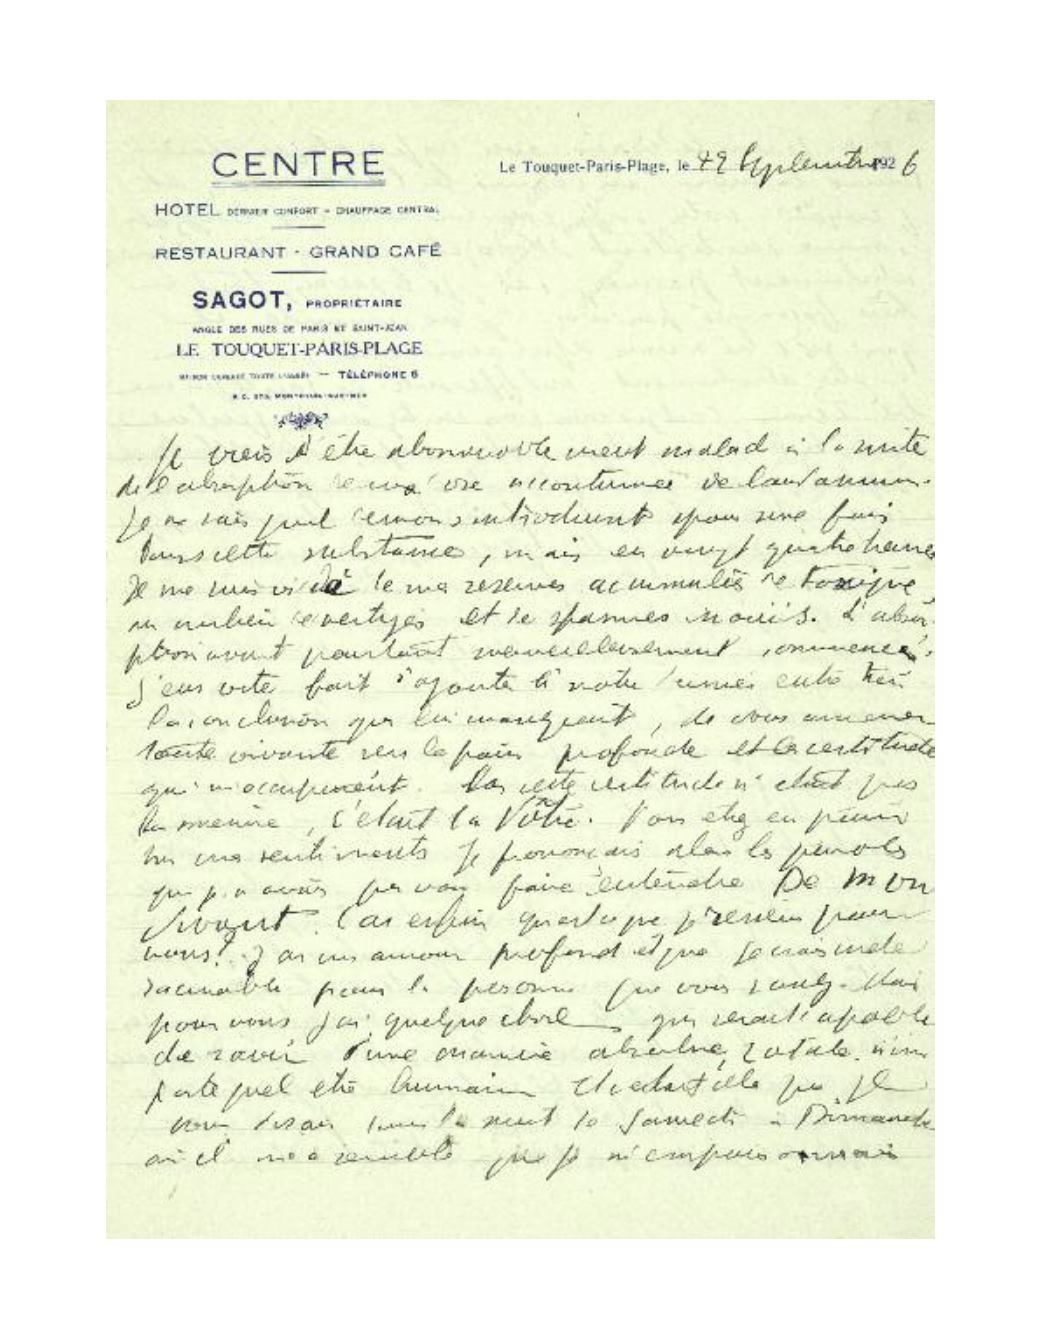 CENTRE
Le Touquet-Paris-Plage, le Septembre 1926
HOTEL DERNIER CONFORT - CHAUFFAGE CENTRAL
RESTAURANT - GRAND CAFÉ
SAGOT, PROPRIÉTAIRE
ANGLE DES RUES DE PARIS ET SAINT-JEAN
LE TOUQUET-PARIS-PLAGE
MAISON OUVERTE TOUTE L'ANNÉE — TÉLÉPHONE 6
R.C. MONTREUIL-SUR-MER
Je viens d'être abominablement malade à la suite
de l'absorption de ma dose accoutumée de laudanum.
Je ne sais quel démon s'introduisit pour une fois
dans cette substance, mais en vingt quatre heures
Je me suis vidé de mes réserves accumulées de toxique
au milieu de vertiges et de spasmes inouïs. L'absor-
ption avait pourtant merveilleusement commencé.
J'eus vite fait d'ajouter à notre entretien
la conclusion qui lui manquait, de vous amener
toute vivante vers la paix profonde et la certitude
qui m'occupaient. Car cette certitude n'était pas
la mienne, c'était la Vôtre. Vous étiez en
mes sentiments Je prononçais alors les paroles
que je n'avais pu vous faire entendre De mon
vivant. Car enfin qu'est-ce que pour
vous? J'ai un amour profond et que je crois indé-
racinable pour la personne que vous savez. Mais
pour vous j'ai quelque chose qui serait capable
de ravir d'une manière absolue, totale n'im
porte quel être humain et c'est cela que je
vous disais dans la nuit de Samedi à Dimanche
où il m'a semblé que je